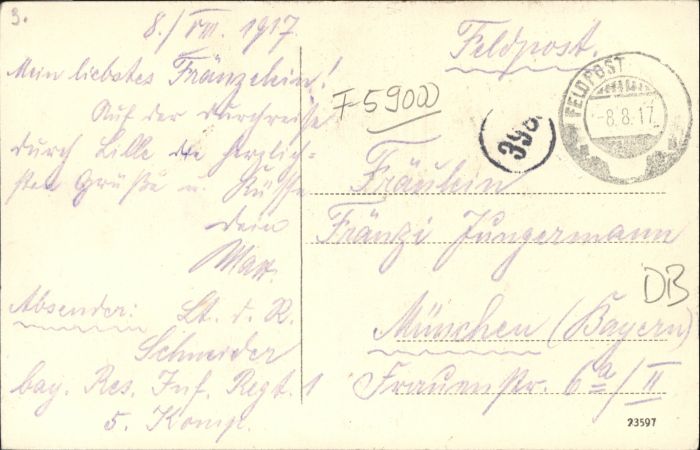 3.
8./VIII. 1917.
Mein liebstes Fränzelein!
Auf der Durchreise
durch Lille die herzlich-
sten Grüße u. Küsse
Dein
Max.
Absender: Lt. d. R.
Schneider
bay. Res. Inf. Regt. 1
5. Komp.
Feldpost.
F 5900
FELDPOST
-8.8.17
Fräulein
Fränzi Jungermann
DB
München (Bayern)
Frauenstr. 6a/II
23597